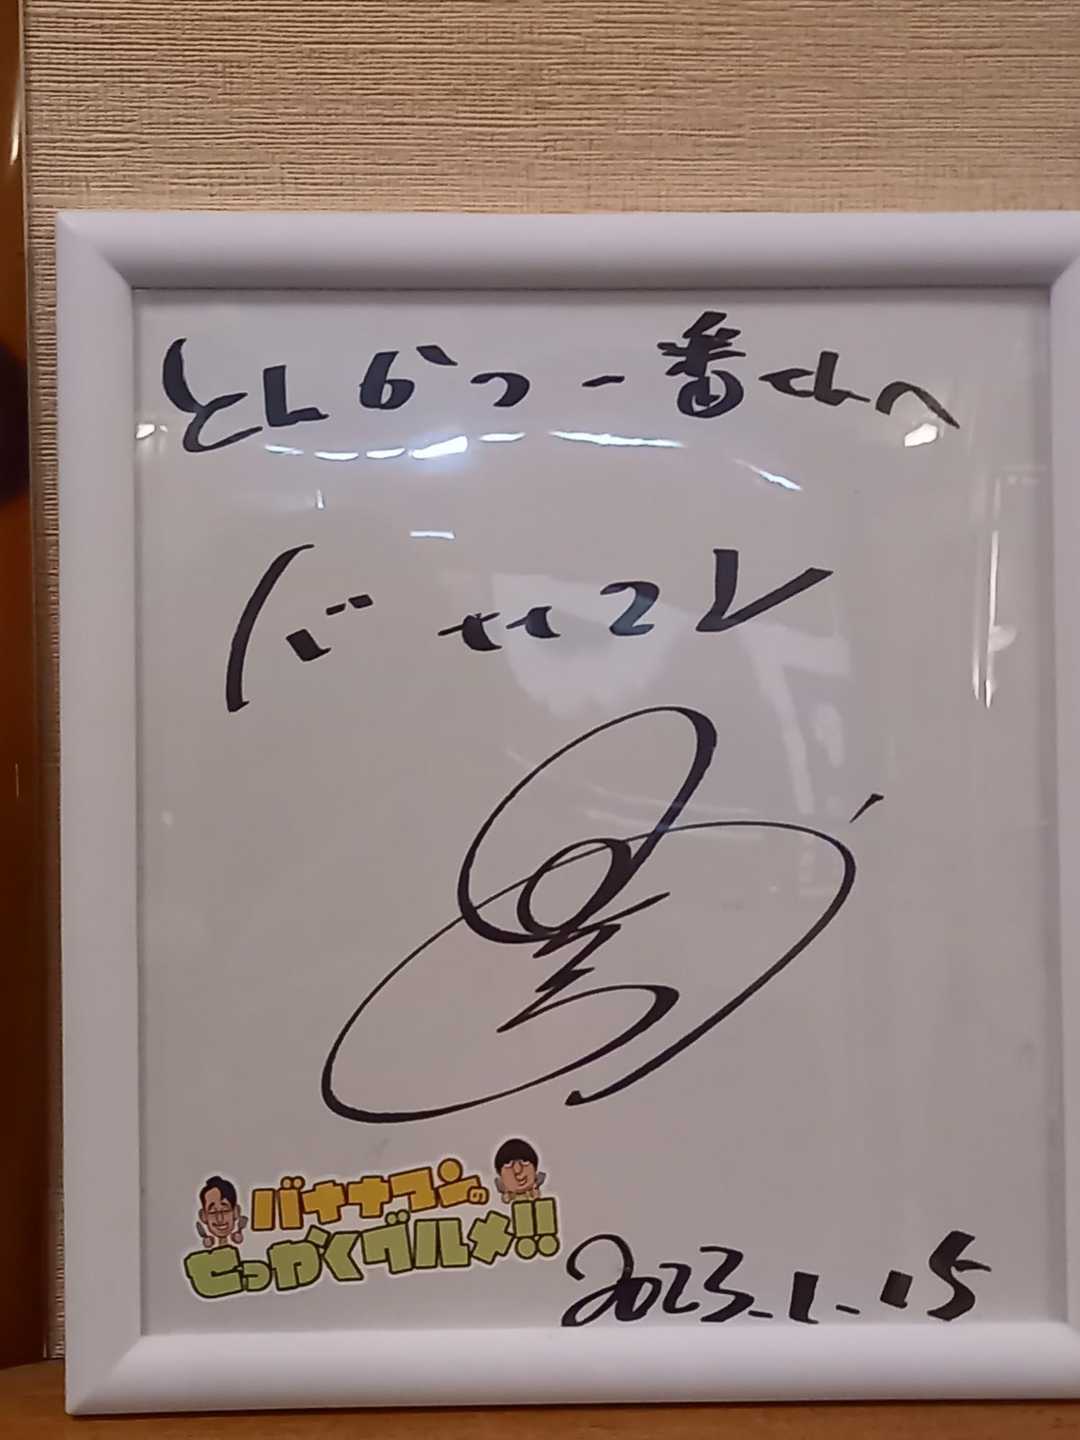 とんかつ一番さんへ
バナナマン
バナナマンの
せっかくグルメ!!
2023.1.15